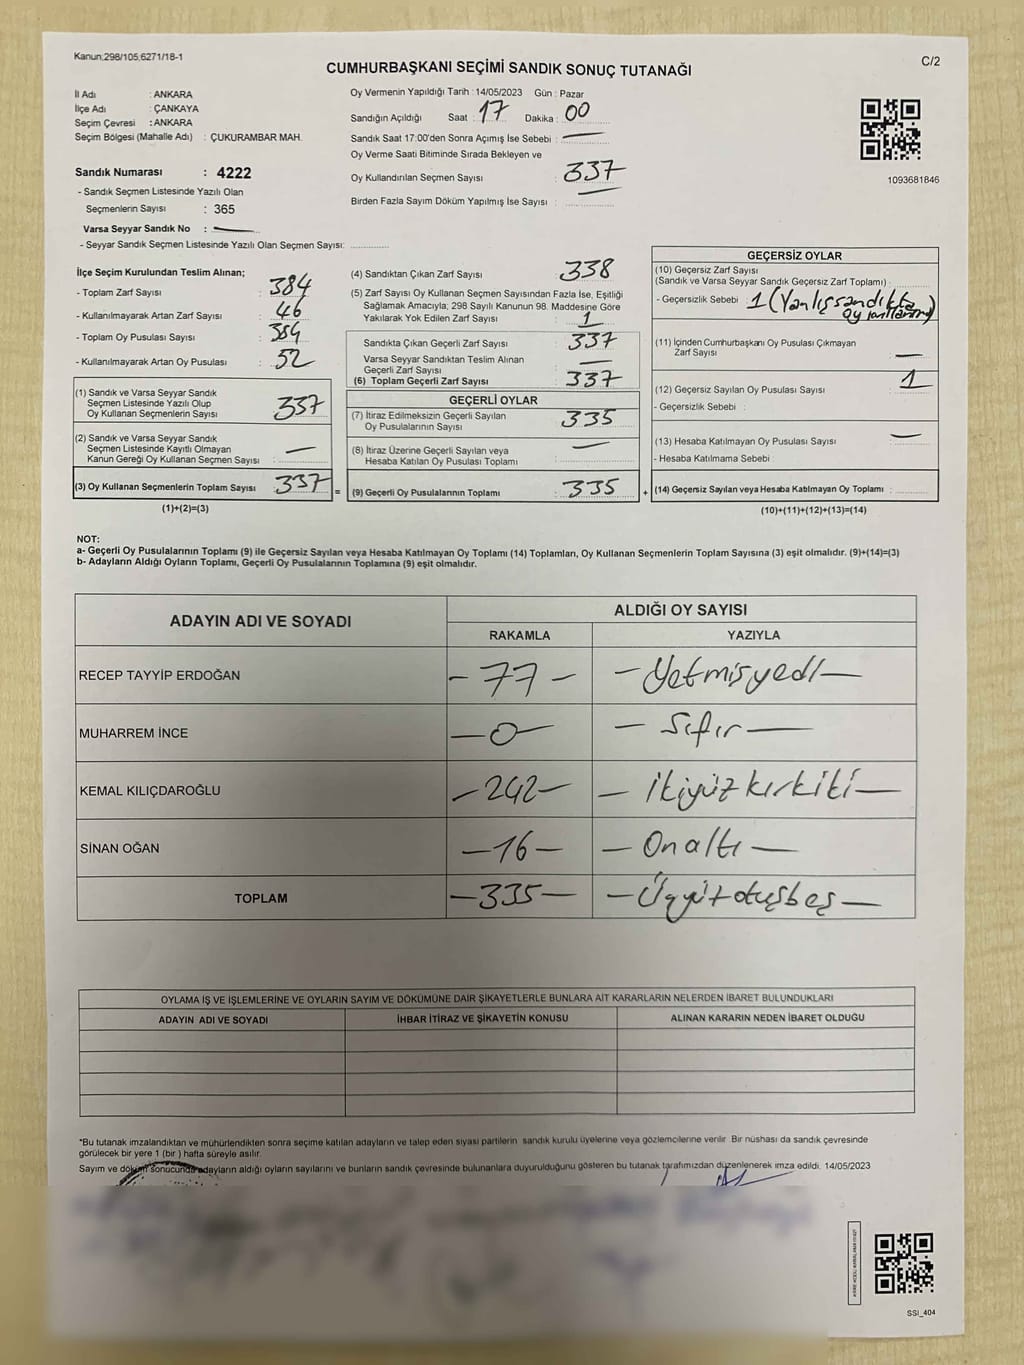 Kanun;298/105;6271/18-1
C/2
CUMHURBAŞKANI SEÇİMİ SANDIK SONUÇ TUTANAĞI
İl Adı : ANKARA
İlçe Adı : ÇANKAYA
Seçim Çevresi : ANKARA
Seçim Bölgesi (Mahalle Adı) : ÇUKURAMBAR MAH.
Oy Vermenin Yapıldığı Tarih : 14/05/2023 Gün : Pazar
Sandığın Açıldığı Saat : 17 Dakika : 00
Sandık Saat 17:00'den Sonra Açımış İse Sebebi : —
Oy Verme Saati Bitiminde Sırada Bekleyen ve
Oy Kullandırılan Seçmen Sayısı : 337
Birden Fazla Sayım Döküm Yapılmış İse Sayısı :
1093681846
Sandık Numarası : 4222
- Sandık Seçmen Listesinde Yazılı Olan
Seçmenlerin Sayısı : 365
Varsa Seyyar Sandık No : —
- Seyyar Sandık Seçmen Listesinde Yazılı Olan Seçmen Sayısı:
İlçe Seçim Kurulundan Teslim Alınan;
- Toplam Zarf Sayısı : 384
- Kullanılmayarak Artan Zarf Sayısı : 46
- Toplam Oy Pusulası Sayısı : 384
- Kullanılmayarak Artan Oy Pusulası : 52
(1) Sandık ve Varsa Seyyar Sandık
Seçmen Listesinde Yazılı Olup
Oy Kullanan Seçmenlerin Sayısı : 337
(2) Sandık ve Varsa Seyyar Sandık
Seçmen Listesinde Kayıtlı Olmayan
Kanun Gereği Oy Kullanan Seçmen Sayısı : —
(3) Oy Kullanan Seçmenlerin Toplam Sayısı : 337 =
(1)+(2)=(3)
(4) Sandıktan Çıkan Zarf Sayısı : 338
(5) Zarf Sayısı Oy Kullanan Seçmen Sayısından Fazla İse, Eşitliği
Sağlamak Amacıyla, 298 Sayılı Kanunun 98. Maddesine Göre
Yakılarak Yok Edilen Zarf Sayısı : 1
Sandıkta Çıkan Geçerli Zarf Sayısı : 337
Varsa Seyyar Sandıktan Teslim Alınan
Geçerli Zarf Sayısı : —
(6) Toplam Geçerli Zarf Sayısı : 337
GEÇERLİ OYLAR
(7) İtiraz Edilmeksizin Geçerli Sayılan
Oy Pusulalarının Sayısı : 335
(8) İtiraz Üzerine Geçerli Sayılan veya
Hesaba Katılan Oy Pusulası Toplamı : —
(9) Geçerli Oy Pusulalarının Toplamı : 335 +
GEÇERSİZ OYLAR
(10) Geçersiz Zarf Sayısı
(Sandık ve Varsa Seyyar Sandık Geçersiz Zarf Toplamı) :
- Geçersizlik Sebebi : 1 (Yanlış sandıkta
oy
(11) İçinden Cumhurbaşkanı Oy Pusulası Çıkmayan
Zarf Sayısı —
(12) Geçersiz Sayılan Oy Pusulası Sayısı : 1
- Geçersizlik Sebebi :
(13) Hesaba Katılmayan Oy Pusulası Sayısı : —
- Hesaba Katılmama Sebebi
(14) Geçersiz Sayılan veya Hesaba Katılmayan Oy Toplamı :
(10)+(11)+(12)+(13)=(14)
NOT:
a- Geçerli Oy Pusulalarının Toplamı (9) ile Geçersiz Sayılan veya Hesaba Katılmayan Oy Toplamı (14) Toplamları, Oy Kullanan Seçmenlerin Toplam Sayısına (3) eşit olmalıdır. (9)+(14)=(3)
b- Adayların Aldığı Oyların Toplamı, Geçerli Oy Pusulalarının Toplamına (9) eşit olmalıdır.
ADAYIN ADI VE SOYADI
ALDIĞI OY SAYISI
RAKAMLA YAZIYLA
RECEP TAYYİP ERDOĞAN -77- -Yetmişyedi-
MUHARREM İNCE -0- -Sıfır-
KEMAL KILIÇDAROĞLU -242- -İkiyüzkırkiki-
SİNAN OĞAN -16- -Onaltı-
TOPLAM -335- -Üçyüzotuzbeş-
OYLAMA İŞ VE İŞLEMLERİNE VE OYLARIN SAYIM VE DÖKÜMÜNE DAİR ŞİKAYETLERLE BUNLARA AİT KARARLARIN NELERDEN İBARET BULUNDUKLARI
ADAYIN ADI VE SOYADI İHBAR İTİRAZ VE ŞİKAYETİN KONUSU ALINAN KARARIN NEDEN İBARET OLDUĞU
*Bu tutanak imzalandıktan ve mühürlendikten sonra seçime katılan adayların ve talep eden siyasi partilerin sandık kurulu üyelerine veya gözlemcilerine verilir. Bir nüshası da sandık çevresinde
görülecek bir yere 1 (bir) hafta süreyle asılır.
Sayım ve döküm sonucunda adayların aldığı oyların sayılarını ve bunların sandık çevresinde bulunanlara duyurulduğunu gösteren bu tutanak tarafımızdan düzenlenerek imza edildi. 14/05/2023
SSI_404